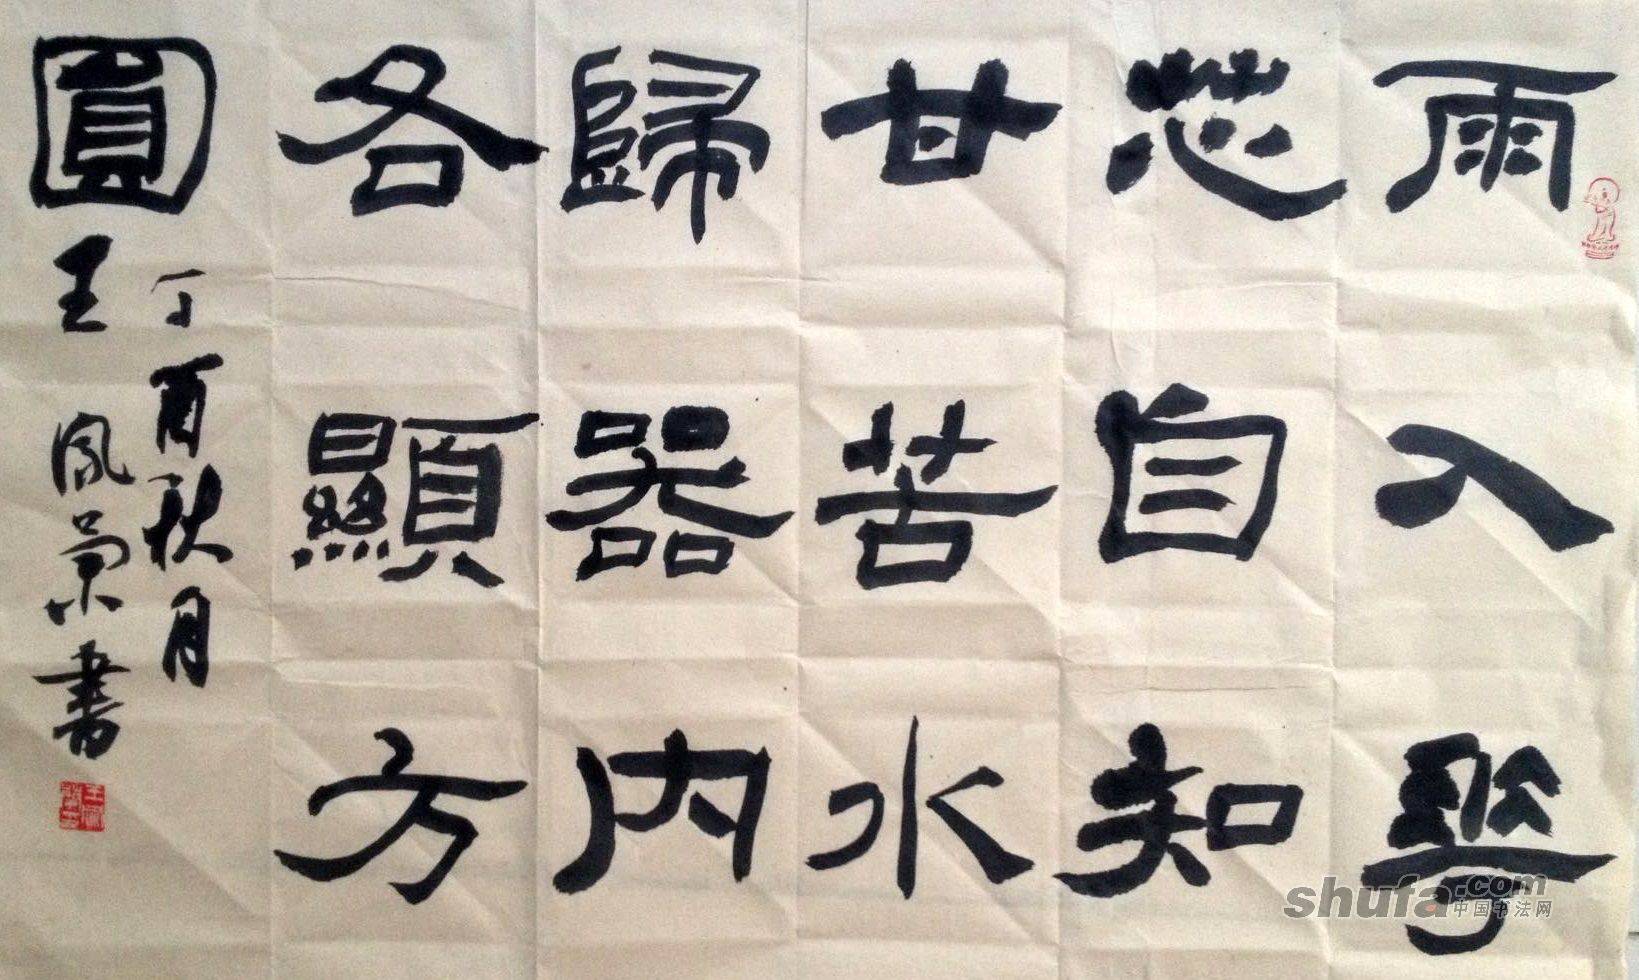 雨入華
芯自知
甘苦水
歸器内
各顯方
圓
丁酉秋月
王凤荣書
shufa.com
中国书法网